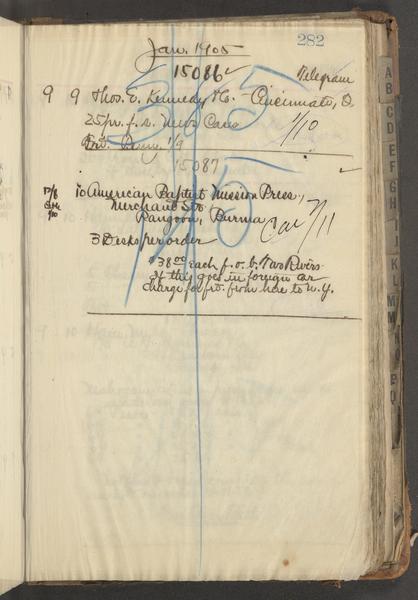 282
Jan. 1905
15086
Telegram
9 9 Thos. E. Kennedy & Co. Cincinnati, O.
25 pr. f. s. News Cases 1/10
1/9
15087
10 American Baptist Mission Press,
Merchant St.
Rangoon, Burma
Car 7/11
3 Desks per order
$38.00 each f. o. b. Two Rivers
If this goes in foreign car
charge for frt. from here to N.Y.
A
B
C
D
E
F
G
H
I
J
K
L
M